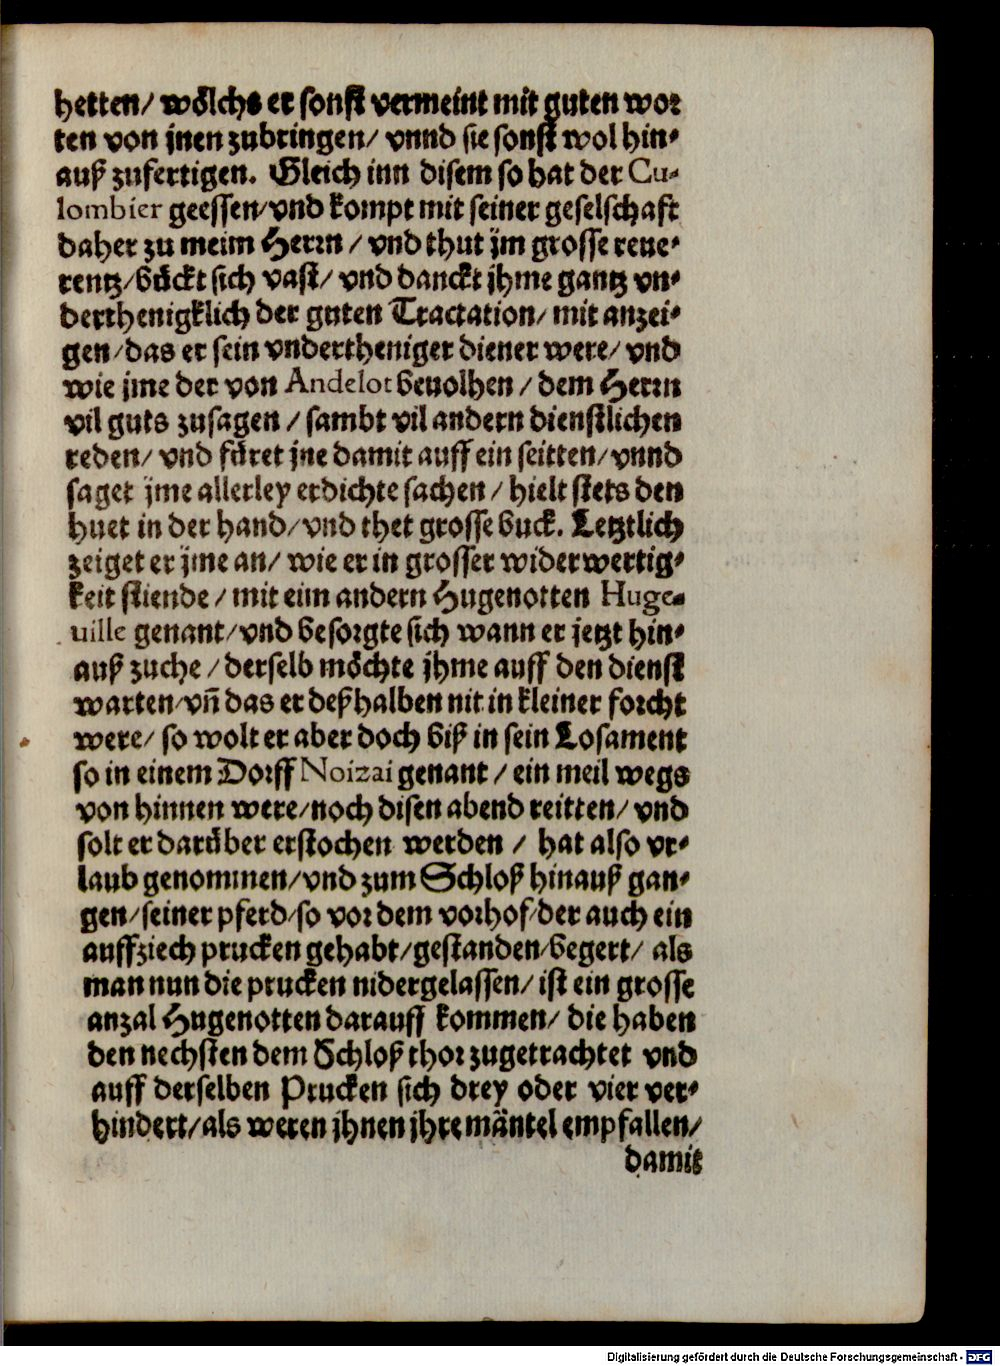 hetten/ wölchs er sonst vermeint mit guten wor
ten von jnen zubringen/ vnnd sie sonst wol hin-
auß zufertigen. Gleich inn disem so hat der Cu-
lombier geessen/vnd kompt mit seiner geselschaft
daher zu meim Herrn / vnd thut jm grosse reue-
rentz/ bückt sich vast/ vnd danckt jhme gantz vn-
derthenigklich der guten Tractation/ mit anzei-
gen/das er sein vndertheniger diener were/ vnd
wie jme der von Andelot beuolhen / dem Herrn
vil guts zusagen / sambt vil andern dienstlichen
reden/ vnd füret jne damit auff ein seitten/ vnnd
saget jme allerley erdichte sachen / hielt stets den
huet in der hand/vnd thet grosse buck. Letztlich
zeiget er jme an/ wie er in grosser widerwertig-
keit stiende / mit eim andern Hugenotten Huge-
uille genant/vnd besorgte sich wann er jetzt hin-
auß zuche / derselb möchte jhme auff den dienst
warten/vñ das er deßhalben nit in kleiner forcht
were/ so wolt er aber doch biß in sein Losament
so in einem Dorff Noizai genant / ein meil wegs
von hinnen were/noch disen abend reitten/ vnd
solt er darüber erstochen werden / hat also vr-
laub genommen/vnd zum Schloß hinauß gan-
gen/seiner pferd/so vor dem vorhof/der auch ein
auffziech prucken gehabt/gestanden/begert/ als
man nun die prucken nidergelassen/ ist ein grosse
anzal Hugenotten darauff kommen/ die haben
den nechsten dem Schloß thor zugetrachtet vnd
auff derselben Prucken sich drey oder vier ver-
hindert/als weren jhnen jhre mäntel empfallen/
damit
Digitalisierung gefördert durch die Deutsche Forschungsgemeinschaft - DFG